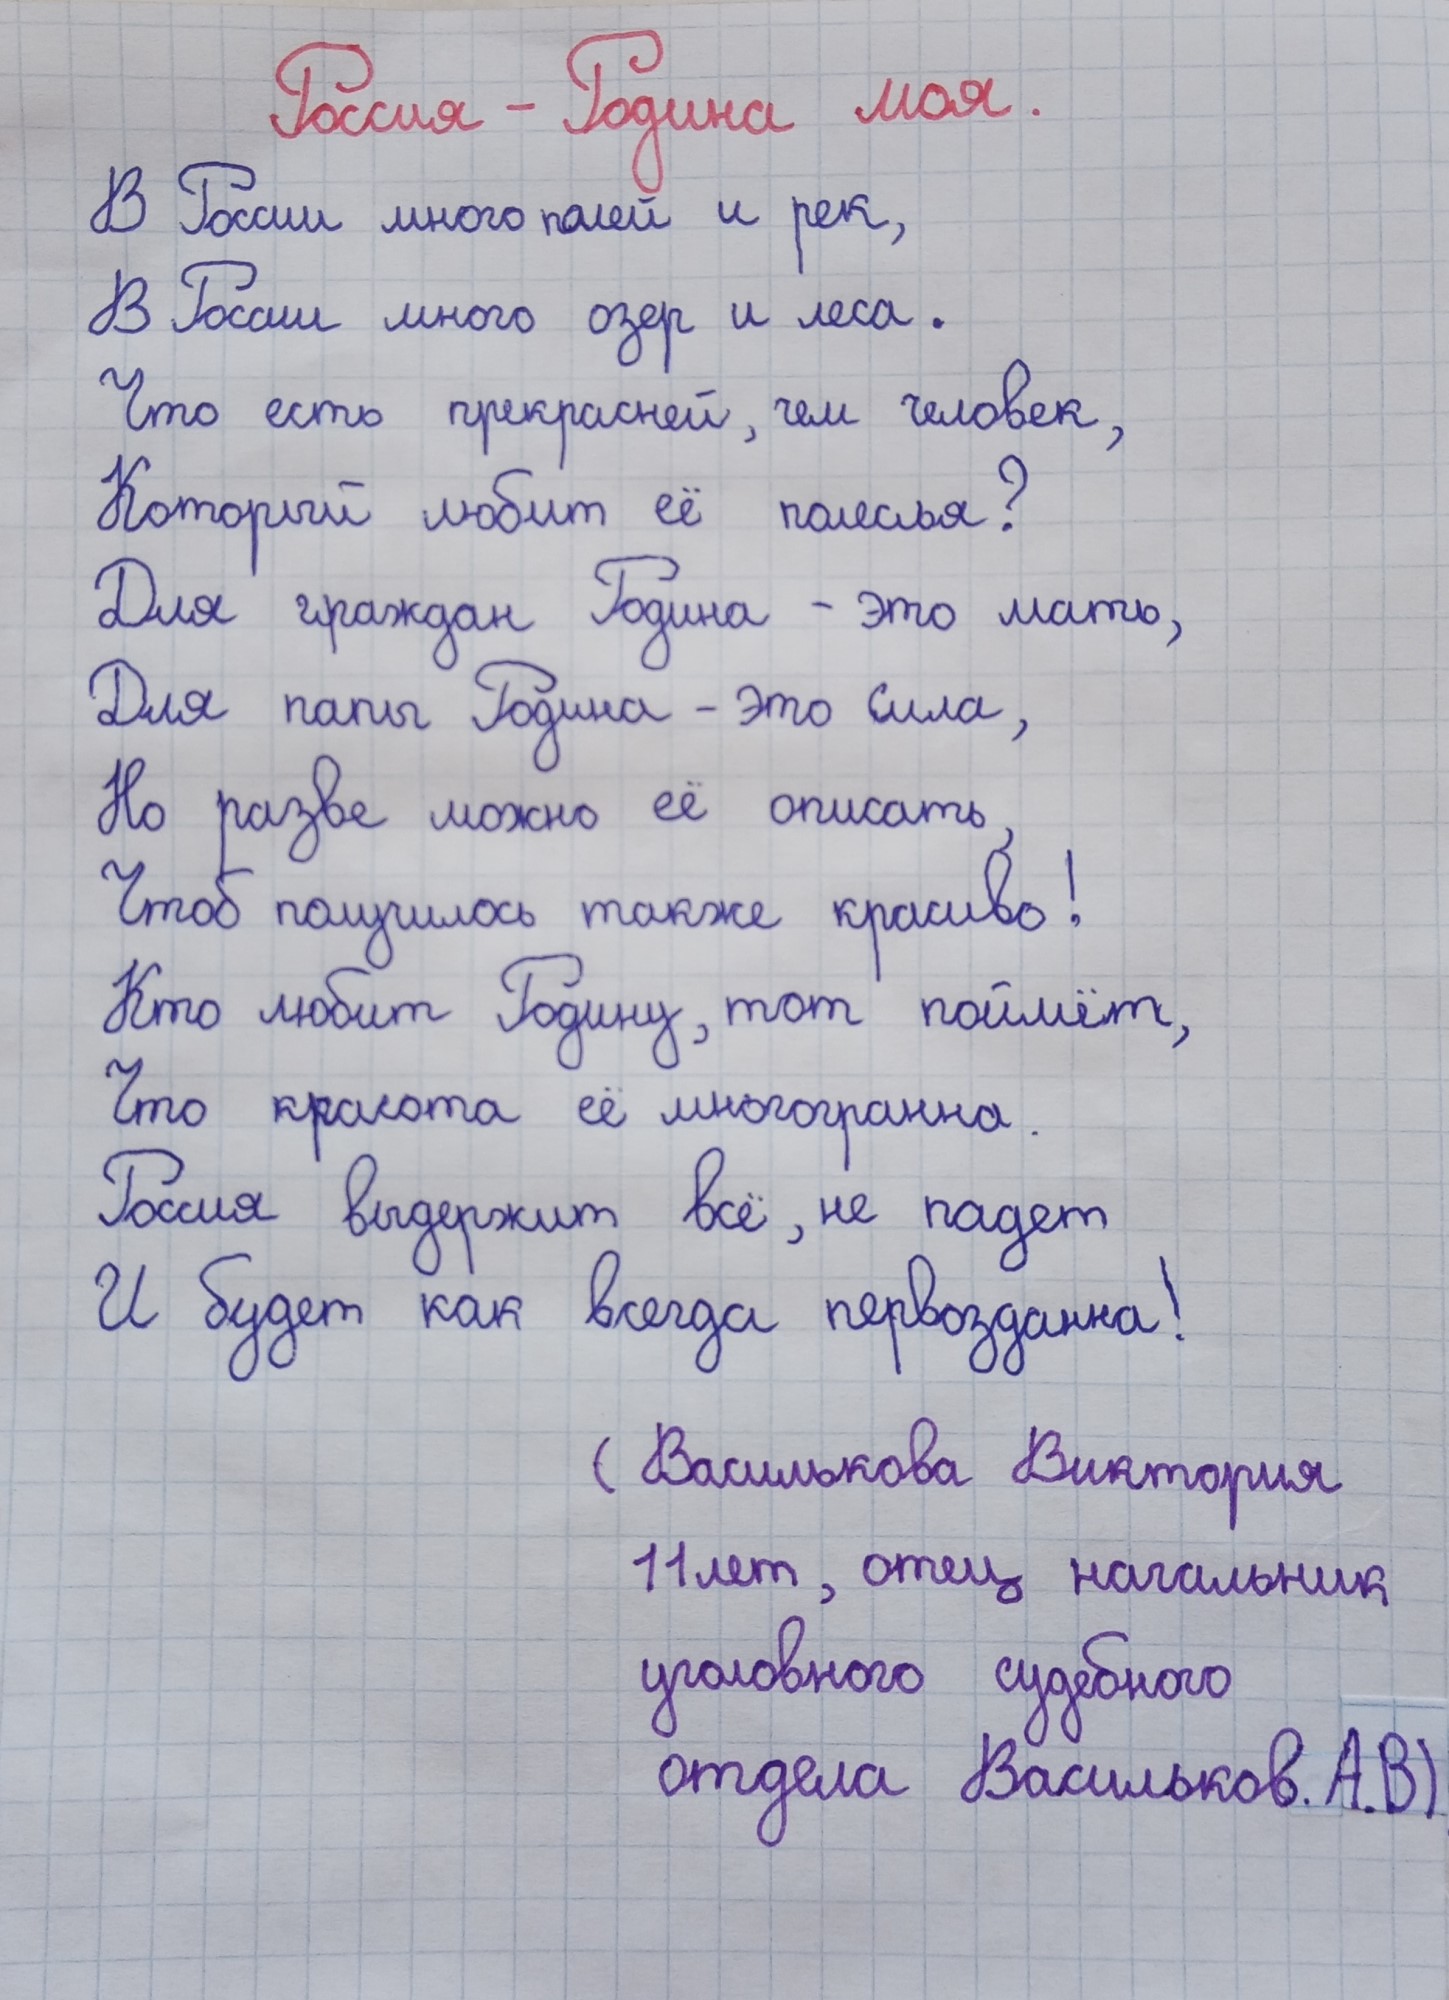 Россия - Родина моя.
В России много полей и рек,
В России много озер и леса.
Что есть прекрасней, чем человек,
Который любит её полесья?
Для граждан Родина - это мать,
Для папы Родина - это сила,
Но разве можно её описать,
Чтоб получилось также красиво!
Кто любит Родину, тот поймёт,
Что красота её многогранна.
Россия выдержит всё, не падет
И будет как всегда первозданна!
(Василькова Виктория
11 лет, отец начальник
уголовного судебного
отдела Васильков. А.В)